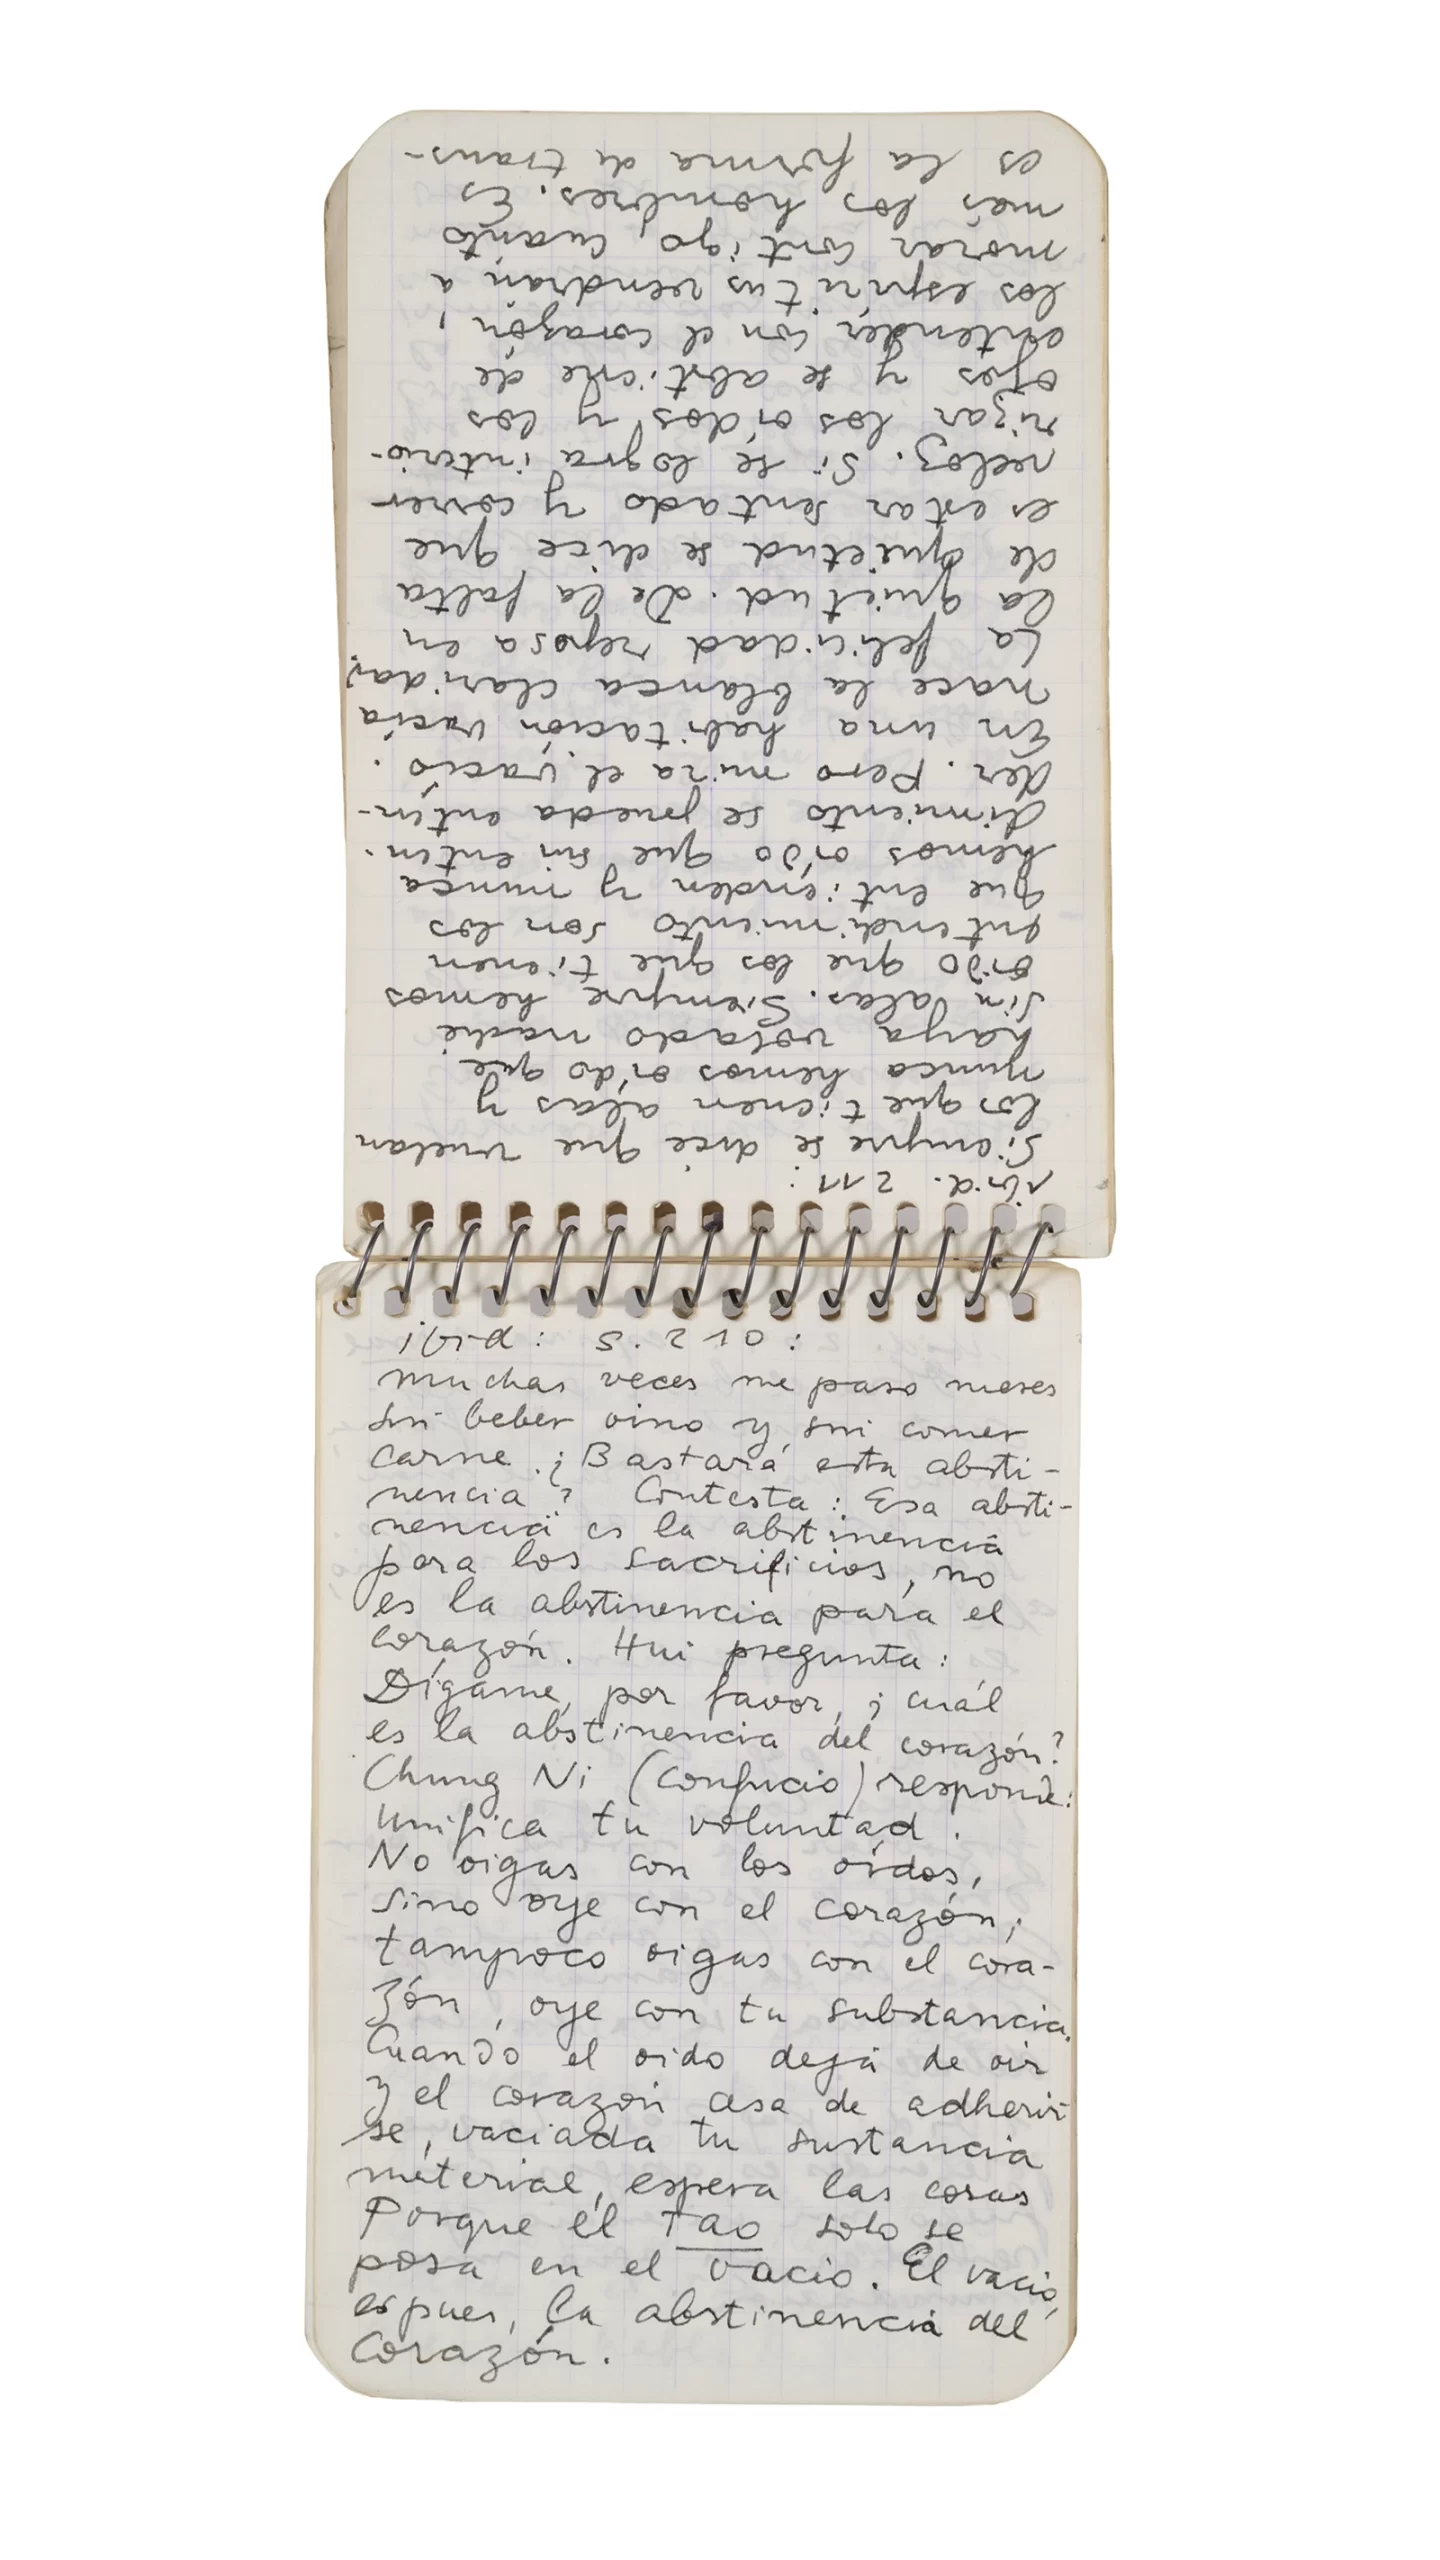 ibid: S. 210:
muchas veces me paso meses
sin beber vino y sin comer
carne. ¿Bastará esta absti-
nencia? Contesta: Esa absti-
nencia es la abstinencia
para los sacrificios, no
es la abstinencia para el
corazón. Hui pregunta:
Dígame, por favor, ¿cuál
es la abstinencia del corazón?
Chung Ni (Confucio) responde:
Unifica tu voluntad.
No oigas con los oídos,
sino oye con el corazón;
tampoco oigas con el cora-
zón, oye con tu substancia.
Cuando el oido deja de oir
y el corazón cesa de adherir-
se, vaciada tu sustancia
material, espera las cosas
Porque el Tao solo se
posa en el vacio. El vacio,
es pues, la abstinencia del
corazón.
ibid. 211:
Siempre se dice que vuelan
los que tienen alas y
nunca hemos oído que
haya volado nadie
sin alas. Siempre hemos
oido que los que tienen
entendimiento son los
que entienden y nunca
hemos oído que sin enten-
dimiento se pueda enten-
der. Pero mira el vacío.
En una habitación vacía
nace la blanca claridad.
La felicidad reposa en
la quietud. De la falta
de quietud se dice que
es estar sentado y correr
veloz. Si se logra interio-
rizar los oídos y los
ojos y se abstiene de
entender con el corazón,
los espíritus vendrán a
morar contigo, cuánto
más los hombres. Es
es la forma de trans-